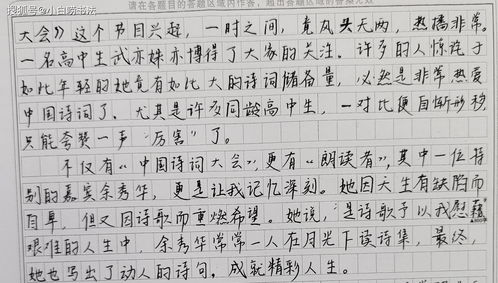 搜狐号@小白唠书法
请在各题目的答题区域内作答，超出答题区域的答案无效
大会》这个节目兴起，一时之间，竟风头无两，热播非常。
一名高中生武亦姝亦博得了大家的关注。许多的人惊诧于
如此年轻的她竟有如此大的诗词储备量，必然是非常热爱
中国诗词了。尤其是许多同龄高中生，一对比便自惭形秽，
只能夸赞一声“厉害”了。
不仅有“中国诗词大会”，更有“朗读者”，其中一位特
别的嘉宾余秀华，更是让我记忆深刻。她因天生有缺陷而
自卑，但又因诗歌而重燃希望。她说，是诗歌予以我慰藉
艰难的人生中，余秀华常常一人在月光下读诗集，最终，
她也写出了动人的诗句，成就精彩人生。